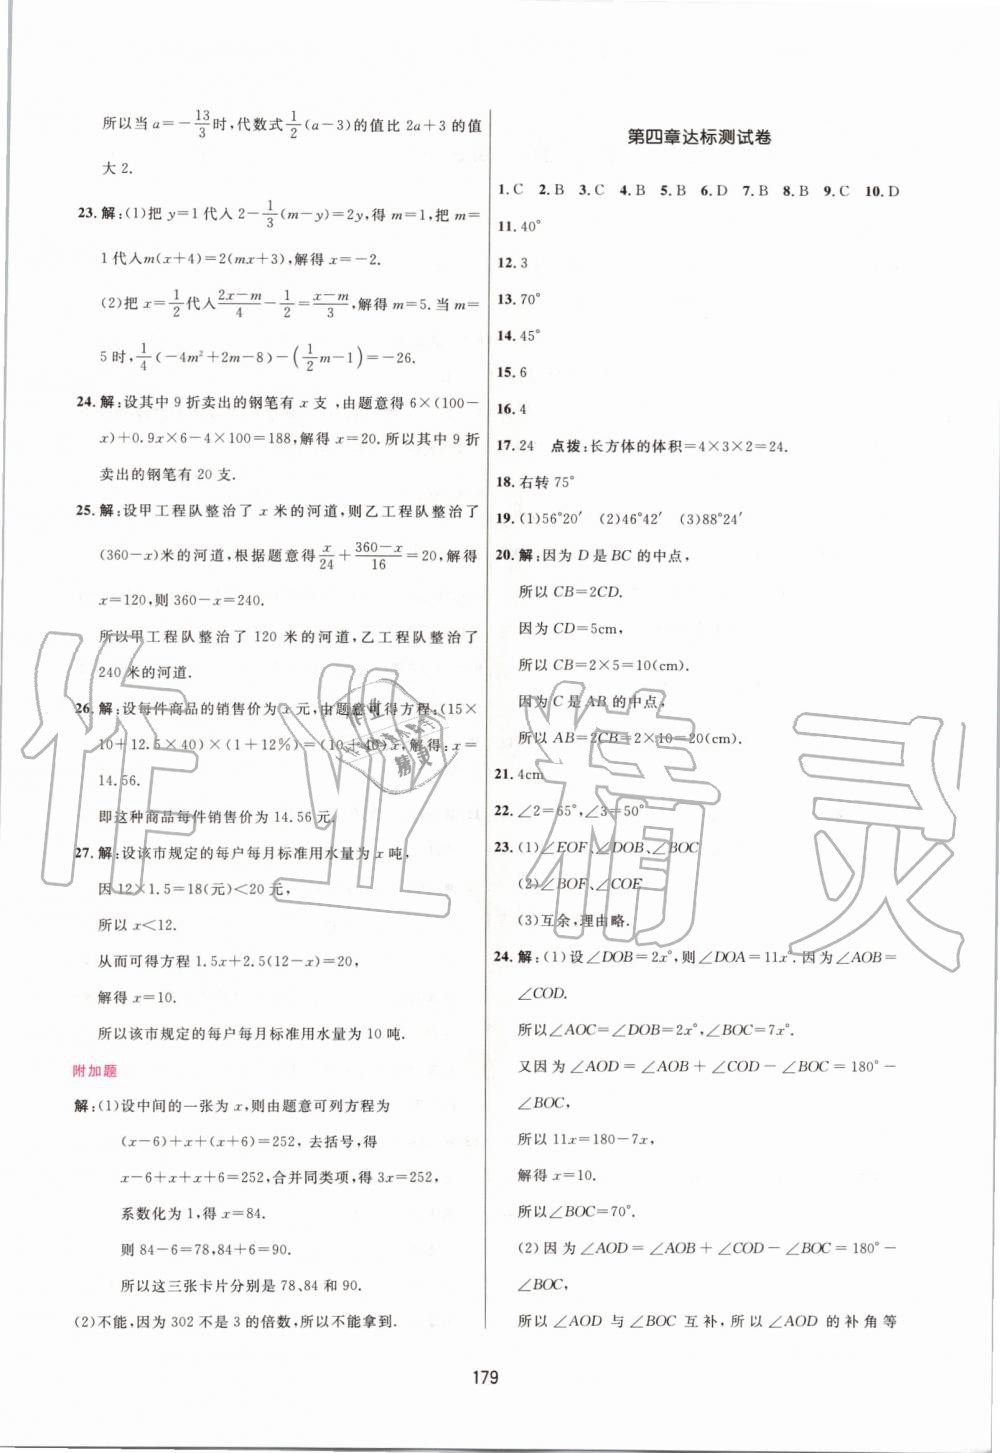 所以当 a=-13/3时,代数式1/2(a-3)的值比 2a+3 的值
大 2.
23. 解:(1)把 y=1 代入 2-1/3(m-y)=2y,得 m=1,把 m=
1代入m(x+4)=2(mx+3),解得 x=-2.
(2)把 x=1/2代入(2x-m)/4-1/2=(x-m)/3,解得 m=5. 当 m=
5 时,1/4(-4m²+2m-8)-(1/2m-1)=-26.
24. 解:设其中 9 折卖出的钢笔有 x 支,由题意得 6×(100-
x)+0.9x×6-4×100=188,解得 x=20. 所以其中 9 折
卖出的钢笔有 20 支.
25. 解:设甲工程队整治了 x 米的河道,则乙工程队整治了
(360-x)米的河道,根据题意得x/24+(360-x)/16=20,解得
x=120,则 360-x=240.
所以甲工程队整治了 120 米的河道,乙工程队整治了
240 米的河道.
26. 解:设每件商品的销售价为 x 元,由题意可得方程:(15×
10+12.5×40)×(1+12%)=(10+40)x,解得:x=
14.56.
即这种商品每件销售价为 14.56 元.
27. 解:设该市规定的每户每月标准用水量为 x 吨,
因12×1.5=18(元)<20 元,
所以 x<12.
从而可得方程 1.5x+2.5(12-x)=20,
解得 x=10.
所以该市规定的每户每月标准用水量为 10 吨.
附加题
解:(1)设中间的一张为 x,则由题意可列方程为
(x-6)+x+(x+6)=252,去括号,得
x-6+x+x+6=252,合并同类项,得 3x=252,
系数化为 1,得 x=84.
则 84-6=78,84+6=90.
所以这三张卡片分别是 78、84 和 90.
(2)不能,因为 302 不是 3 的倍数,所以不能拿到.
第四章达标测试卷
1. C 2. B 3. C 4. B 5. B 6. D 7. B 8. B 9. C 10. D
11. 40°
12. 3
13. 70°
14. 45°
15. 6
16. 4
17. 24 点拨:长方体的体积=4×3×2=24.
18. 右转 75°
19. (1)56°20′ (2)46°42′ (3)88°24′
20. 解:因为 D 是 BC 的中点,
所以 CB=2CD.
因为 CD=5cm,
所以 CB=2×5=10(cm).
因为 C 是 AB 的中点,
所以 AB=2CB=2×10=20(cm).
21. 4cm
22. ∠2=65°,∠3=50°
23. (1)∠EOF、∠DOB、∠BOC
(2)∠BOF、∠COE.
(3)互余,理由略.
24. 解:(1)设∠DOB=2x°,则∠DOA=11x°. 因为∠AOB=
∠COD.
所以∠AOC=∠DOB=2x°,∠BOC=7x°.
又因为∠AOD=∠AOB+∠COD-∠BOC=180°-
∠BOC,
所以 11x=180-7x,
解得 x=10.
所以∠BOC=70°.
(2)因为∠AOD=∠AOB+∠COD-∠BOC=180°-
∠BOC,
所以∠AOD 与∠BOC 互补,所以∠AOD 的补角等
179
作业精灵